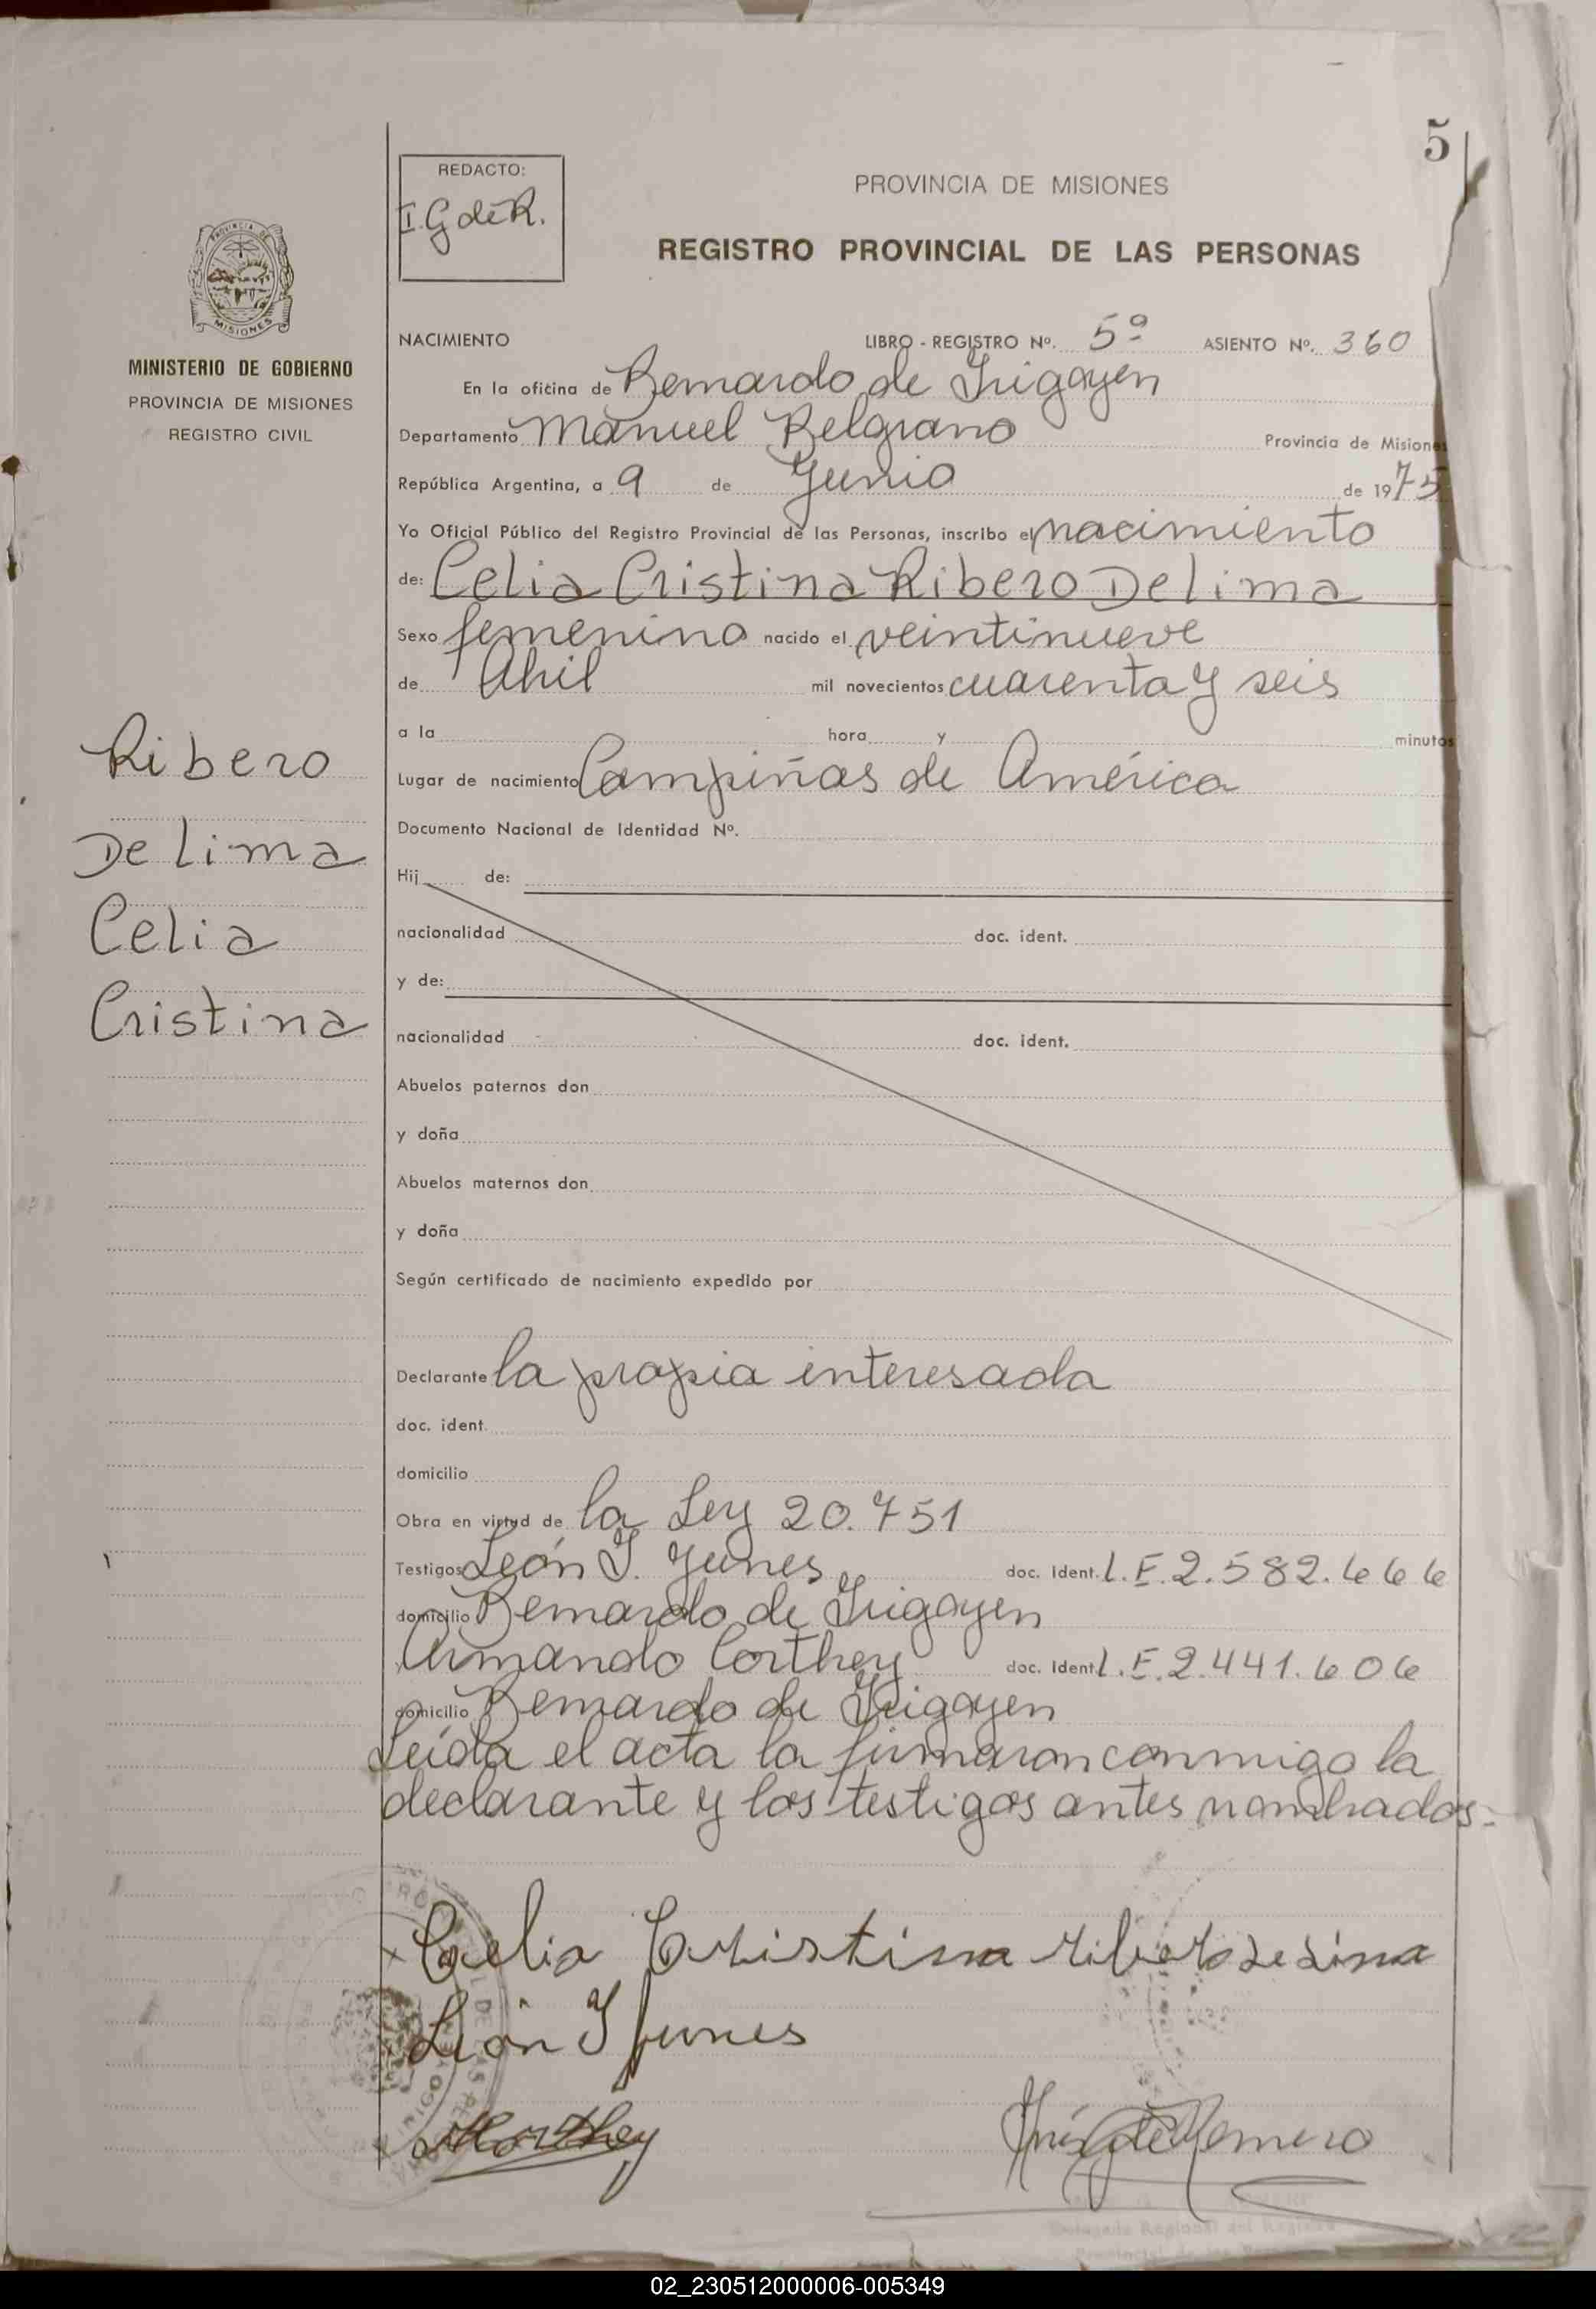 5
REDACTO:
I. G de R.
PROVINCIA DE MISIONES
REGISTRO PROVINCIAL DE LAS PERSONAS
PROVINCIA DE
MISIONES
MINISTERIO DE GOBIERNO
PROVINCIA DE MISIONES
REGISTRO CIVIL
NACIMIENTO LIBRO - REGISTRO Nº. 5º ASIENTO Nº. 360
En la oficina de Bernardo de Irigoyen
Departamento Manuel Belgrano Provincia de Misiones
República Argentina, a 9 de Junio de 1975
Yo Oficial Público del Registro Provincial de las Personas, inscribo el nacimiento
de: Celia Cristina Ribero De lima
Sexo femenino nacido el veintinueve
de Abril mil novecientos cuarenta y seis
a la hora y minutos
Lugar de nacimiento Campiñas de América
Documento Nacional de Identidad Nº.
Hij de:
nacionalidad doc. ident.
y de:
nacionalidad doc. ident.
Abuelos paternos don
y doña
Abuelos maternos don
y doña
Según certificado de nacimiento expedido por
Declarante la propia interesada
doc. ident.
domicilio
Obra en virtud de la Ley 20.751
Testigos León J. Yunes doc. Ident. L.E. 2.582.666
domicilio Bernardo de Irigoyen
Armando Corthey doc. Ident. L.E. 2.441.606
domicilio Bernardo de Irigoyen
Leída el acta la firmaron conmigo la
declarante y los testigos antes nombrados.-
Ribero
De lima
Celia
Cristina
Celia Cristina ribero de Lima
León J Yunes
Corthey
Inés G de Romero
Delegada Regional del Registro
02_230512000006-005349